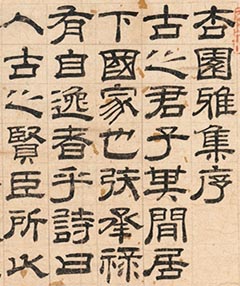 杏園雅集序
古之君子其閒居
下國家也矧承祿
有自逸者乎詩曰
人古之賢臣所以